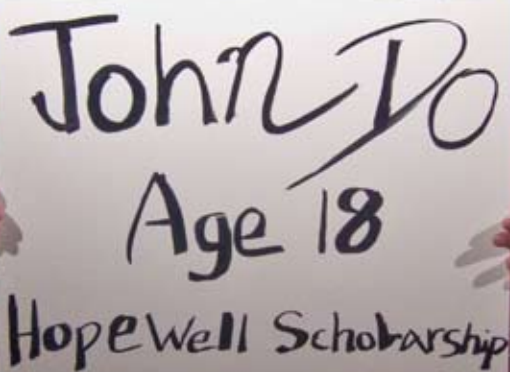 John Do
Age 18
HopeWell Scholarship